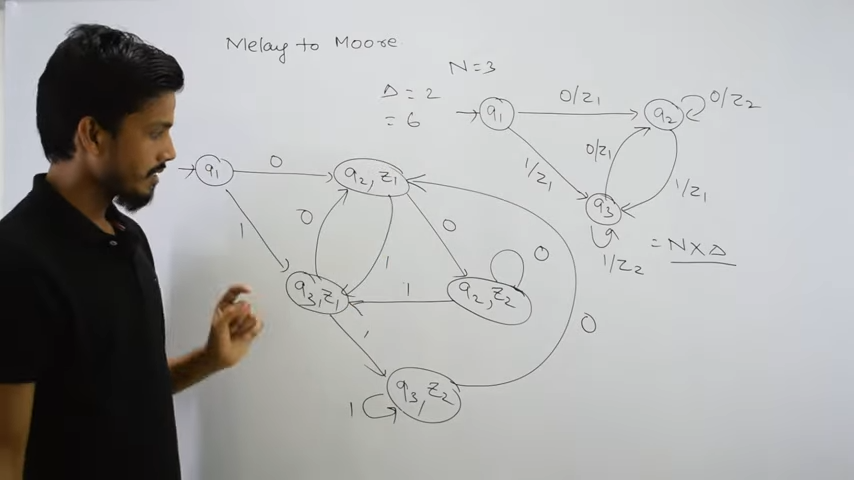 Melay to Moore
N=3
Δ = 2
= 6
q1
0/z1
q2
0/z2
1/z1
0/z1
1/z1
q3
1/z2
= N×Δ
q1
0
q2, z1
1
0
1
0
0
q3, z1
1
q2, z2
1
0
q3, z2
1